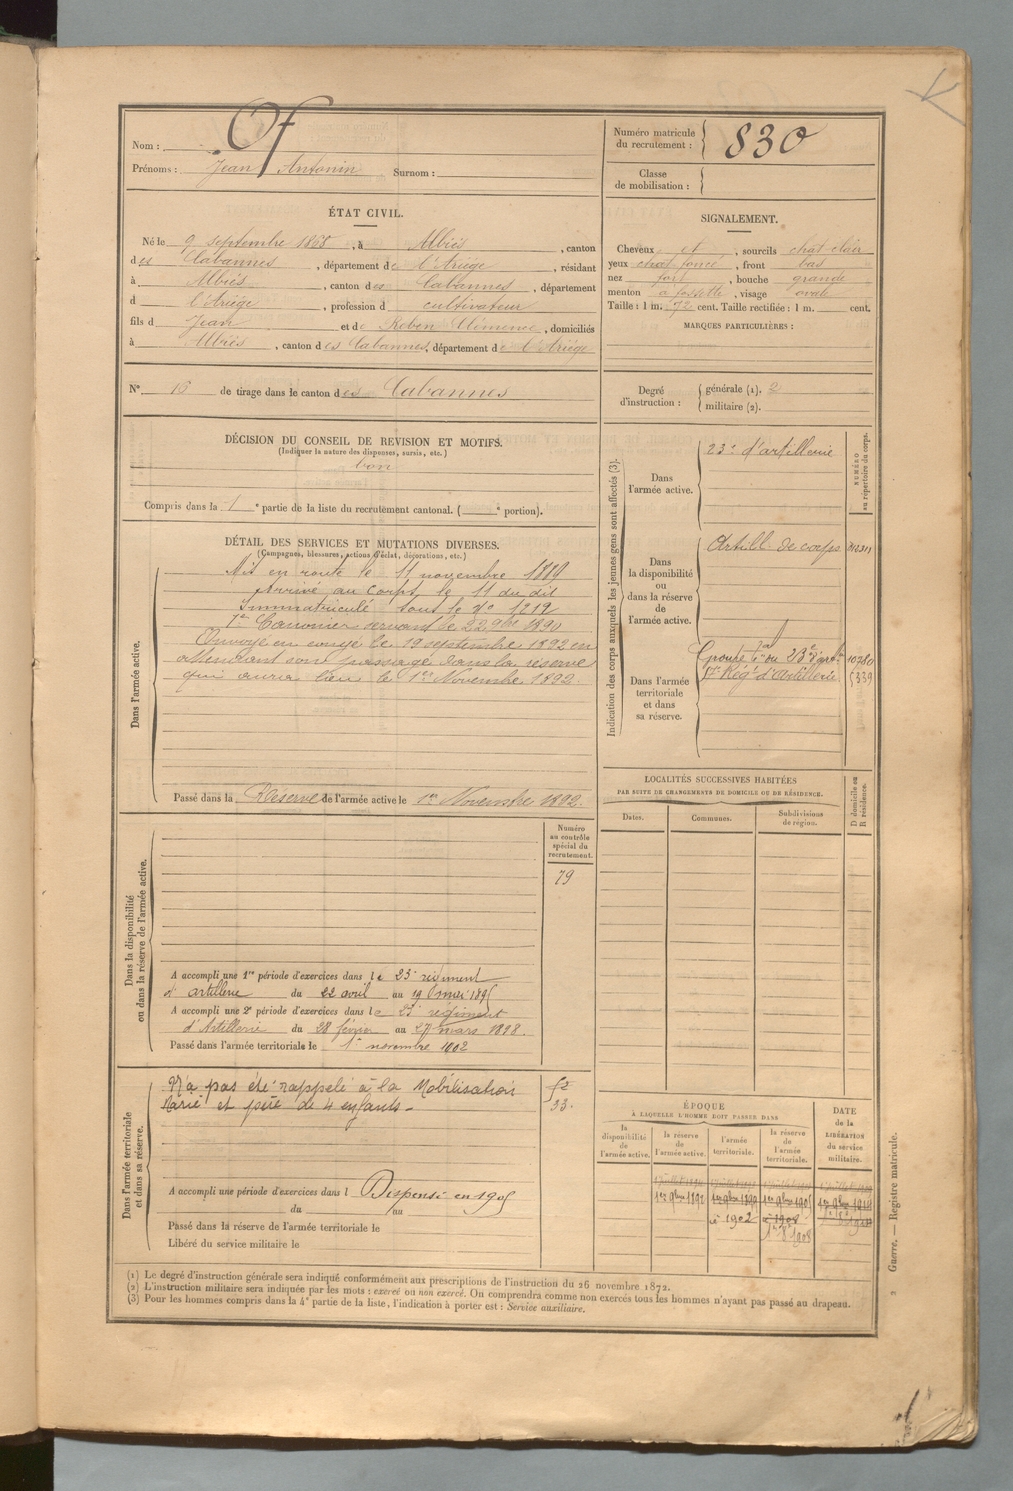 Nom : Of
Prénoms : Jean Antonin Surnom :
Numéro matricule du recrutement : 830
Classe de mobilisation :
ÉTAT CIVIL.
Né le 9 septembre 1868, à Albiès, canton
des Cabannes, département de l'Ariège, résidant
à Albiès, canton des Cabannes, département
d l'Ariège, profession d cultivateur
fils d Jean et de Roben Clémence, domiciliés
à Albiès, canton des Cabannes, département de l'Ariège
SIGNALEMENT.
Cheveux et, sourcils chat. clair
yeux chat. foncé, front bas
nez fort, bouche grande
menton a fossette, visage ovale
Taille : 1 m. 72 cent. Taille rectifiée : 1 m. cent.
MARQUES PARTICULIÈRES :
N° 16 de tirage dans le canton des Cabannes
Degré d'instruction : générale (1). 2
militaire (2).
DÉCISION DU CONSEIL DE REVISION ET MOTIFS.
(Indiquer la nature des dispenses, sursis, etc.)
bon
Compris dans la 1e partie de la liste du recrutement cantonal. ( e portion).
DÉTAIL DES SERVICES ET MUTATIONS DIVERSES.
(Campagnes, blessures, actions d'éclat, décorations, etc.)
Dans l'armée active.
Mis en route le 11 novembre 1889
Arrivé au corps, le 11 du dit
Immatriculé sous le N° 1212
1er Canonier servant le 22 9bre 1890
Envoyé en congé le 19 septembre 1892 en
attendant son passage dans la réserve
qui aura lieu le 1er Novembre 1892.
Passé dans la Réserve de l'armée active le 1er Novembre 1892.
Indication des corps auxquels les jeunes gens sont affectés (3).
NUMÉRO au répertoire du corps.
Dans l'armée active.
23e d'artillerie
Dans la disponibilité ou dans la réserve de l'armée active.
Artill. de corps
Dans l'armée territoriale et dans sa réserve.
Groupe tal du 23e d'art. 10780
Régt d'Artillerie 339
LOCALITÉS SUCCESSIVES HABITÉES
PAR SUITE DE CHANGEMENTS DE DOMICILE OU DE RÉSIDENCE.
Dates.
Communes.
Subdivisions de région.
D domicile ou R résidence.
Dans la disponibilité ou dans la réserve de l'armée active.
Numéro au contrôle spécial du recrutement.
79
A accompli une 1re période d'exercices dans le 23e régiment
d'artillerie du 22 avril au 19 mai 1895
A accompli une 2e période d'exercices dans le 23 régiment
d'Artillerie du 28 février au 27 mars 1898.
Passé dans l'armée territoriale le 1er novembre 1902
Dans l'armée territoriale et dans sa réserve.
N'a pas été rappelé à la Mobilisation
Marié et père de 4 enfants -
33.
A accompli une période d'exercices dans l Dispensé en 1905
du au
Passé dans la réserve de l'armée territoriale le
Libéré du service militaire le
ÉPOQUE
À LAQUELLE L'HOMME DOIT PASSER DANS
la disponibilité de l'armée active.
la réserve de l'armée active.
l'armée territoriale.
la réserve de l'armée territoriale.
DATE de la LIBÉRATION du service militaire.
1er 9bre 1892
1er 9bre 1899
1er 9bre 1905
1902
1908
1908
Guerre. — Registre matricule.
(1) Le degré d'instruction générale sera indiqué conformément aux prescriptions de l'instruction du 26 novembre 1872.
(2) L'instruction militaire sera indiquée par les mots : exercé ou non exercé. On comprendra comme non exercés tous les hommes n'ayant pas passé au drapeau.
(3) Pour les hommes compris dans la 4e partie de la liste, l'indication à porter est : Service auxiliaire.